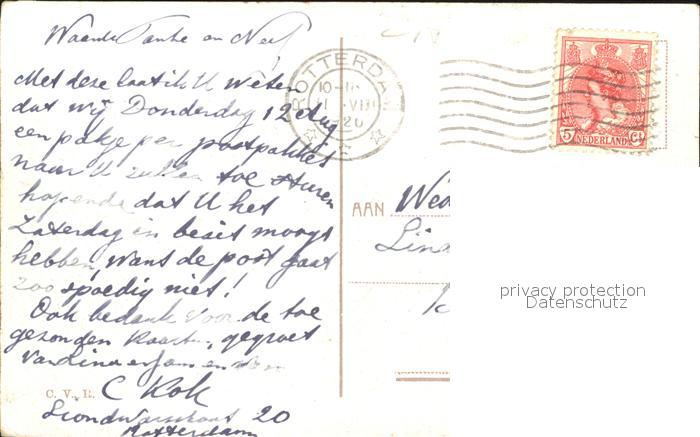 Waarde Tante en Neef
Met deze laat ik U weten
dat wij Donderdag 12 Aug
een pakje per postpakket
naar U zullen toe sturen
hopende dat U het
Zaterdag in bezit moogt
hebben, Want de post gaat
zoo spoedig niet!
Ook bedankt voor de toe
gezonden kaarten, gegroet
van Lina en
C Kok
20
Rotterdam
C. V., R.
ROTTERDAM
10-11
VIII
20
5 Ct
NEDERLAND
AAN
privacy protection
Datenschutz